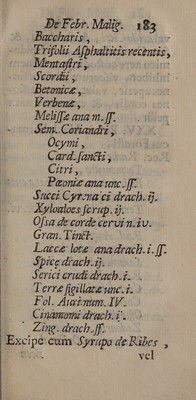 De Febr. Malig. 183
Baccharis,
Trifolii Aſphaltitis recentis,
Mentaſtri,
Scordii,
Betonicæ,
Verbenæ,
Meliſſæ ana m. ſſ.
Sem. Coriandri,
Ocymi,
Card. ſancti,
Citri,
Pæoniæ ana unc. ſſ.
Succi Cyrenaici drach. ij.
Xyloaloes ſcrup. ij.
Oſſa de corde cervi n. iv.
Gran. Tinct.
Laccæ lotæ ana drach. i. ſſ.
Spicæ drach. ij.
Serici crudi drach. i.
Terræ ſigillatæ unc. i.
Fol. Auri num. IV.
Cinamomi drach. i.
Zing. drach. ſſ.
Excipe cum Syrupo de Ribes,
vel